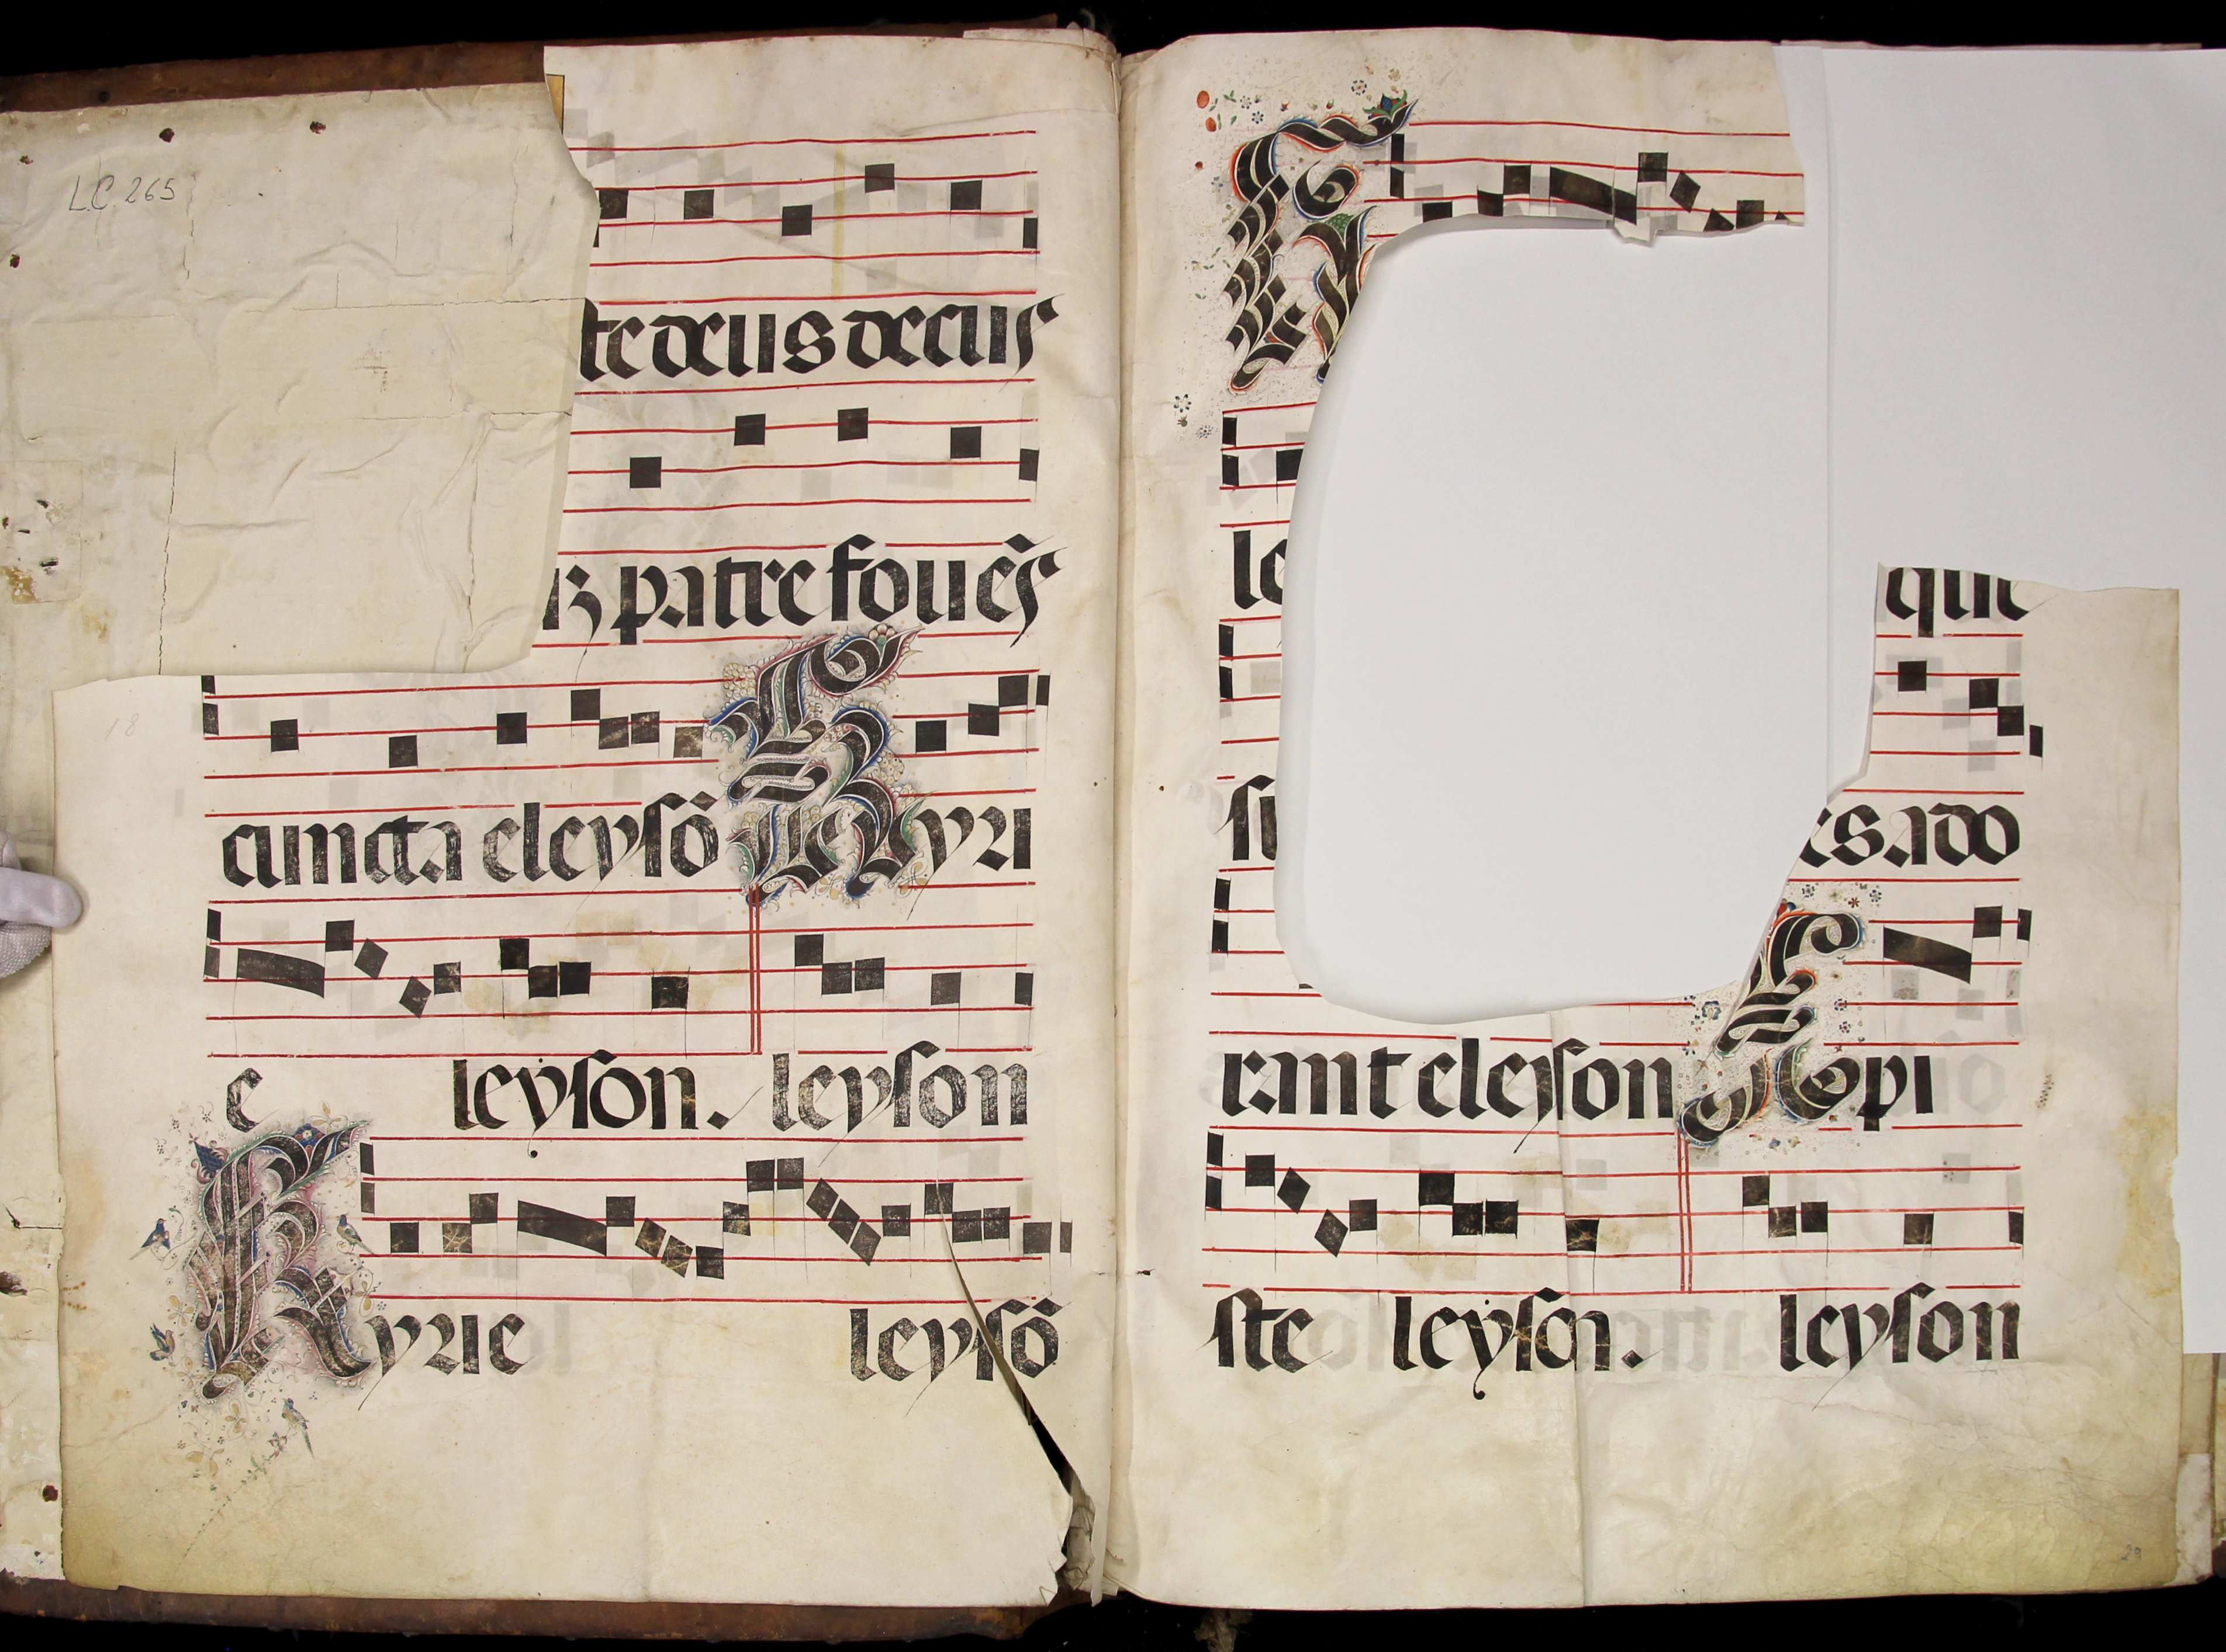 L.C. 265
te deus decus
ꝫ patre fouēs
18
cuncta eleysō Kyri
e leyson. leyson
Kyrie leysō
le
que
es ado
rant eleyson Xpi
ste leyson. leyson
29